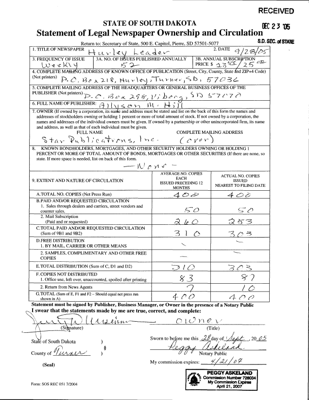 RECEIVED
DEC 23 '05
S.D. SEC. of STATE
STATE OF SOUTH DAKOTA
Statement of Legal Newspaper Ownership and Circulation
Return to: Secretary of State, 500 E. Capitol, Pierre, SD 57501-5077
1. TITLE OF NEWSPAPER
Hurley Leader
2. DATE
9/28/05
3. FREQUENCY OF ISSUE
Weekly
3A. NO. OF ISSUES PUBLISHED ANNUALLY
52
3B. ANNUAL SUBSCRIPTION
PRICE $
4. COMPLETE MAILING ADDRESS OF KNOWN OFFICE OF PUBLICATION (Street, City, County, State and ZIP+4 Code)
(Not printers) P.O. Box 218, Hurley, Turner, SD, 57036
5. COMPLETE MAILING ADDRESS OF THE HEADQUARTERS OR GENERAL BUSINESS OFFICES OF THE
PUBLISHER (Not printers) P.O. Box 256, Viborg, SD 57070
6. FULL NAME OF PUBLISHER: Allyson M. Hill
7. OWNER (If owned by a corporation, its name and address must be stated and also immediately
FULL NAME COMPLETE MAILING ADDRESS
Star Publications, Inc. (over)
8. KNOWN BONDHOLDERS, MORTGAGES, AND OTHER SECURITY HOLDERS OWNING OR HOLDING 1
PERCENT OR MORE OF TOTAL AMOUNT OF BONDS, MORTGAGES OR OTHER SECURITIES (If there are none, so
state. If more space is needed, list on back of this form.
- None -
9. EXTENT AND NATURE OF CIRCULATION
AVERAGE NO. COPIES
EACH
ISSUED PRECEDING 12
MONTHS
ACTUAL NO. COPIES
ISSUED
NEAREST TO FILING DATE
A. TOTAL NO. COPIES (Net Press Run) 400 400
B. PAID AND/OR REQUESTED CIRCULATION
1. Sales through dealers and carriers, street vendors and
counter sales. 50 50
2. Mail Subscription
(Paid and or requested) 260 253
C. TOTAL PAID AND/OR REQUESTED CIRCULATION
(Sum of 9B1 and 9B2) 310 303
D. FREE DISTRIBUTION
1. BY MAIL, CARRIER OR OTHER MEANS
2. SAMPLES, COMPLIMENTARY AND OTHER FREE
COPIES
E. TOTAL DISTRIBUTION (Sum of C, D1 and D2) 310 303
F. COPIES NOT DISTRIBUTED
1. Office use, left over, unaccounted, spoiled after printing 83 87
2. Return from News Agents 7 10
G. TOTAL (Sum of E, F1 and F2 - Should equal net press run
shown in A) 400 400
Statement must be signed by Publisher, Business Manager, or Owner in the presence of a Notary Public
I swear that the statements made by me are true, correct, and complete:
owner
(Signature) (Title)
State of South Dakota )
County of Turner )
Sworn to before me this 28 day of Sept. 20 05
Peggy Askeland
Notary Public
(Seal)
My commission expires: 4/21/07
PEGGY ASKELAND
My Commission Expires
April 21, 2007